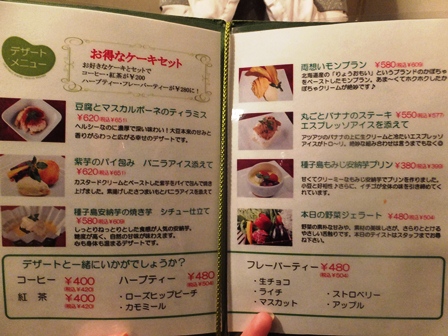 デザート
メニュー
お得なケーキセット
お好きなケーキとセットで
コーヒー・紅茶が¥200
ハーブティー・フレーバーティーが¥280に!
豆腐とマスカルポーネのティラミス
¥620(税込¥651)
ヘルシーなのに濃厚で深い味わい!大豆本来の甘みと
香りがふわっと広がる幸せのデザートです。
紫芋のパイ包み バニラアイス添えて
¥620(税込¥651)
カスタードクリームとペーストした紫芋をパイで包んで焼き
上げました。
種子島安納芋の焼き芋 シチュー仕立て
¥580(税込¥609)
しっとりねっとりとした食感が人気の安納芋。
糖度が高く、自然の甘味が味わえます。
心も身体も温まるデザートです。
デザートと一緒にいかがでしょうか?
コーヒー ¥400
(税込¥420)
紅茶 ¥400
(税込¥420)
ハーブティー ¥480
(税込¥504)
・ローズヒップピーチ
・カモミール
両想いモンブラン ¥580(税込¥609)
北海道産の「りょうおもい」というブランドのかぼちゃ
をペーストしたモンブラン。あま〜くてホクホクしたか
ぼちゃクリームが絶妙です♪
丸ごとバナナのステーキ ¥550(税込¥577)
エスプレッソアイスを添えて
アツアツのバナナの上に生クリームと冷たいエスプレッ
ソアイスがトローリ。
種子島もみじ安納芋プリン ¥380(税込¥399)
甘くてクリーミーなもみじ安納芋でプリンを作りました。
小豆と好相性♪さらに、イチゴが全体の味を引き締めてく
れています。
本日の野菜ジェラート ¥480(税込¥504)
フレーバーティー ¥480
(税込¥504)
・生チョコ
・ライチ
・マスカット
・ストロベリー
・アップル